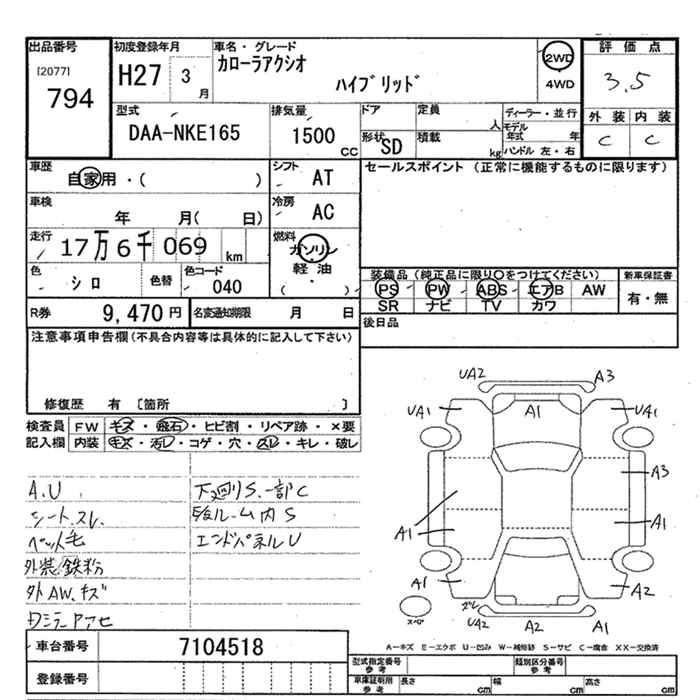 出品番号
[2077]
794
初度登録年月
H27 3 月
車名・グレード
カローラアクシオ
ハイブリッド
2WD
4WD
評価点
3.5
外装 内装
C C
型式
DAA-NKE165
排気量
1500 cc
ドア
定員 人
形状 SD
積載 kg
ディーラー・並行
モデル年式 年
ハンドル 左・右
車歴
自家用・( )
シフト
AT
セールスポイント (正常に機能するものに限ります)
車検
年 月( 日)
冷房
AC
走行
17万6千069 km
燃料
ガソリン
軽油
・
( )
色
シロ
色替
色コード
040
装備品 (純正品に限り○をつけてください)
PS PW ABS エアB AW
SR ナビ TV カワ
新車保証書
有・無
R券 9,470円
名変通知期限 月 日
後日品
注意事項申告欄(不具合内容等は具体的に記入して下さい)
修復歴 有 [箇所 ]
検査員記入欄
FW キズ・飛石・ヒビ割・リペア跡・×要
内装 キズ・汚レ・コゲ・穴・スレ・キレ・破レ
A.U
シートスレ
ペット毛
外装鉄粉
外AWキズ
下廻りS.一部C
ルーム内S
エンドパネルU
UA2 A3
UA1 A1 UA1
A3
A1 A1
A1 A2
スペア
ズレ
UA2 A2 A1
A-キズ E-エクボ U-凹み W-補修跡 S-サビ C-腐食 XX-交換済
車台番号 7104518
登録番号
型式指定番号 参考
類別区分番号 参考
車庫証明用 参考
長さ cm
幅 cm
高さ cm